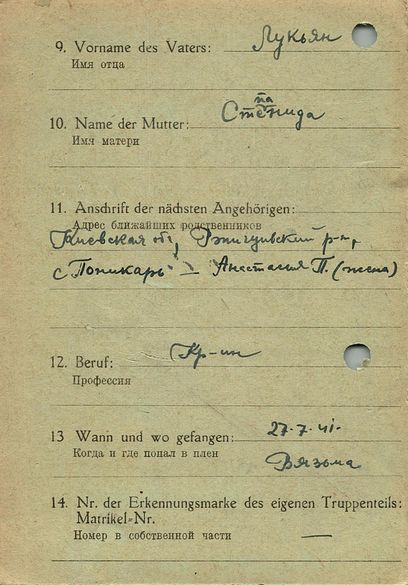 9. Vorname des Vaters: Лукьян
Имя отца
па
10. Name der Mutter: Степнида
Имя матери
11. Anschrift der nächsten Angehörigen:
Адрес ближайших родственников
Киевская об, Ржищивский р-н,
с Поникарь — Анастасия П. (жена)
12. Beruf: Кр-ин
Профессия
13 Wann und wo gefangen: 27.7.41.
Когда и где попал в плен Вязьма
14. Nr. der Erkennungsmarke des eigenen Truppenteils:
Matrikel-Nr.
Номер в собственной части —